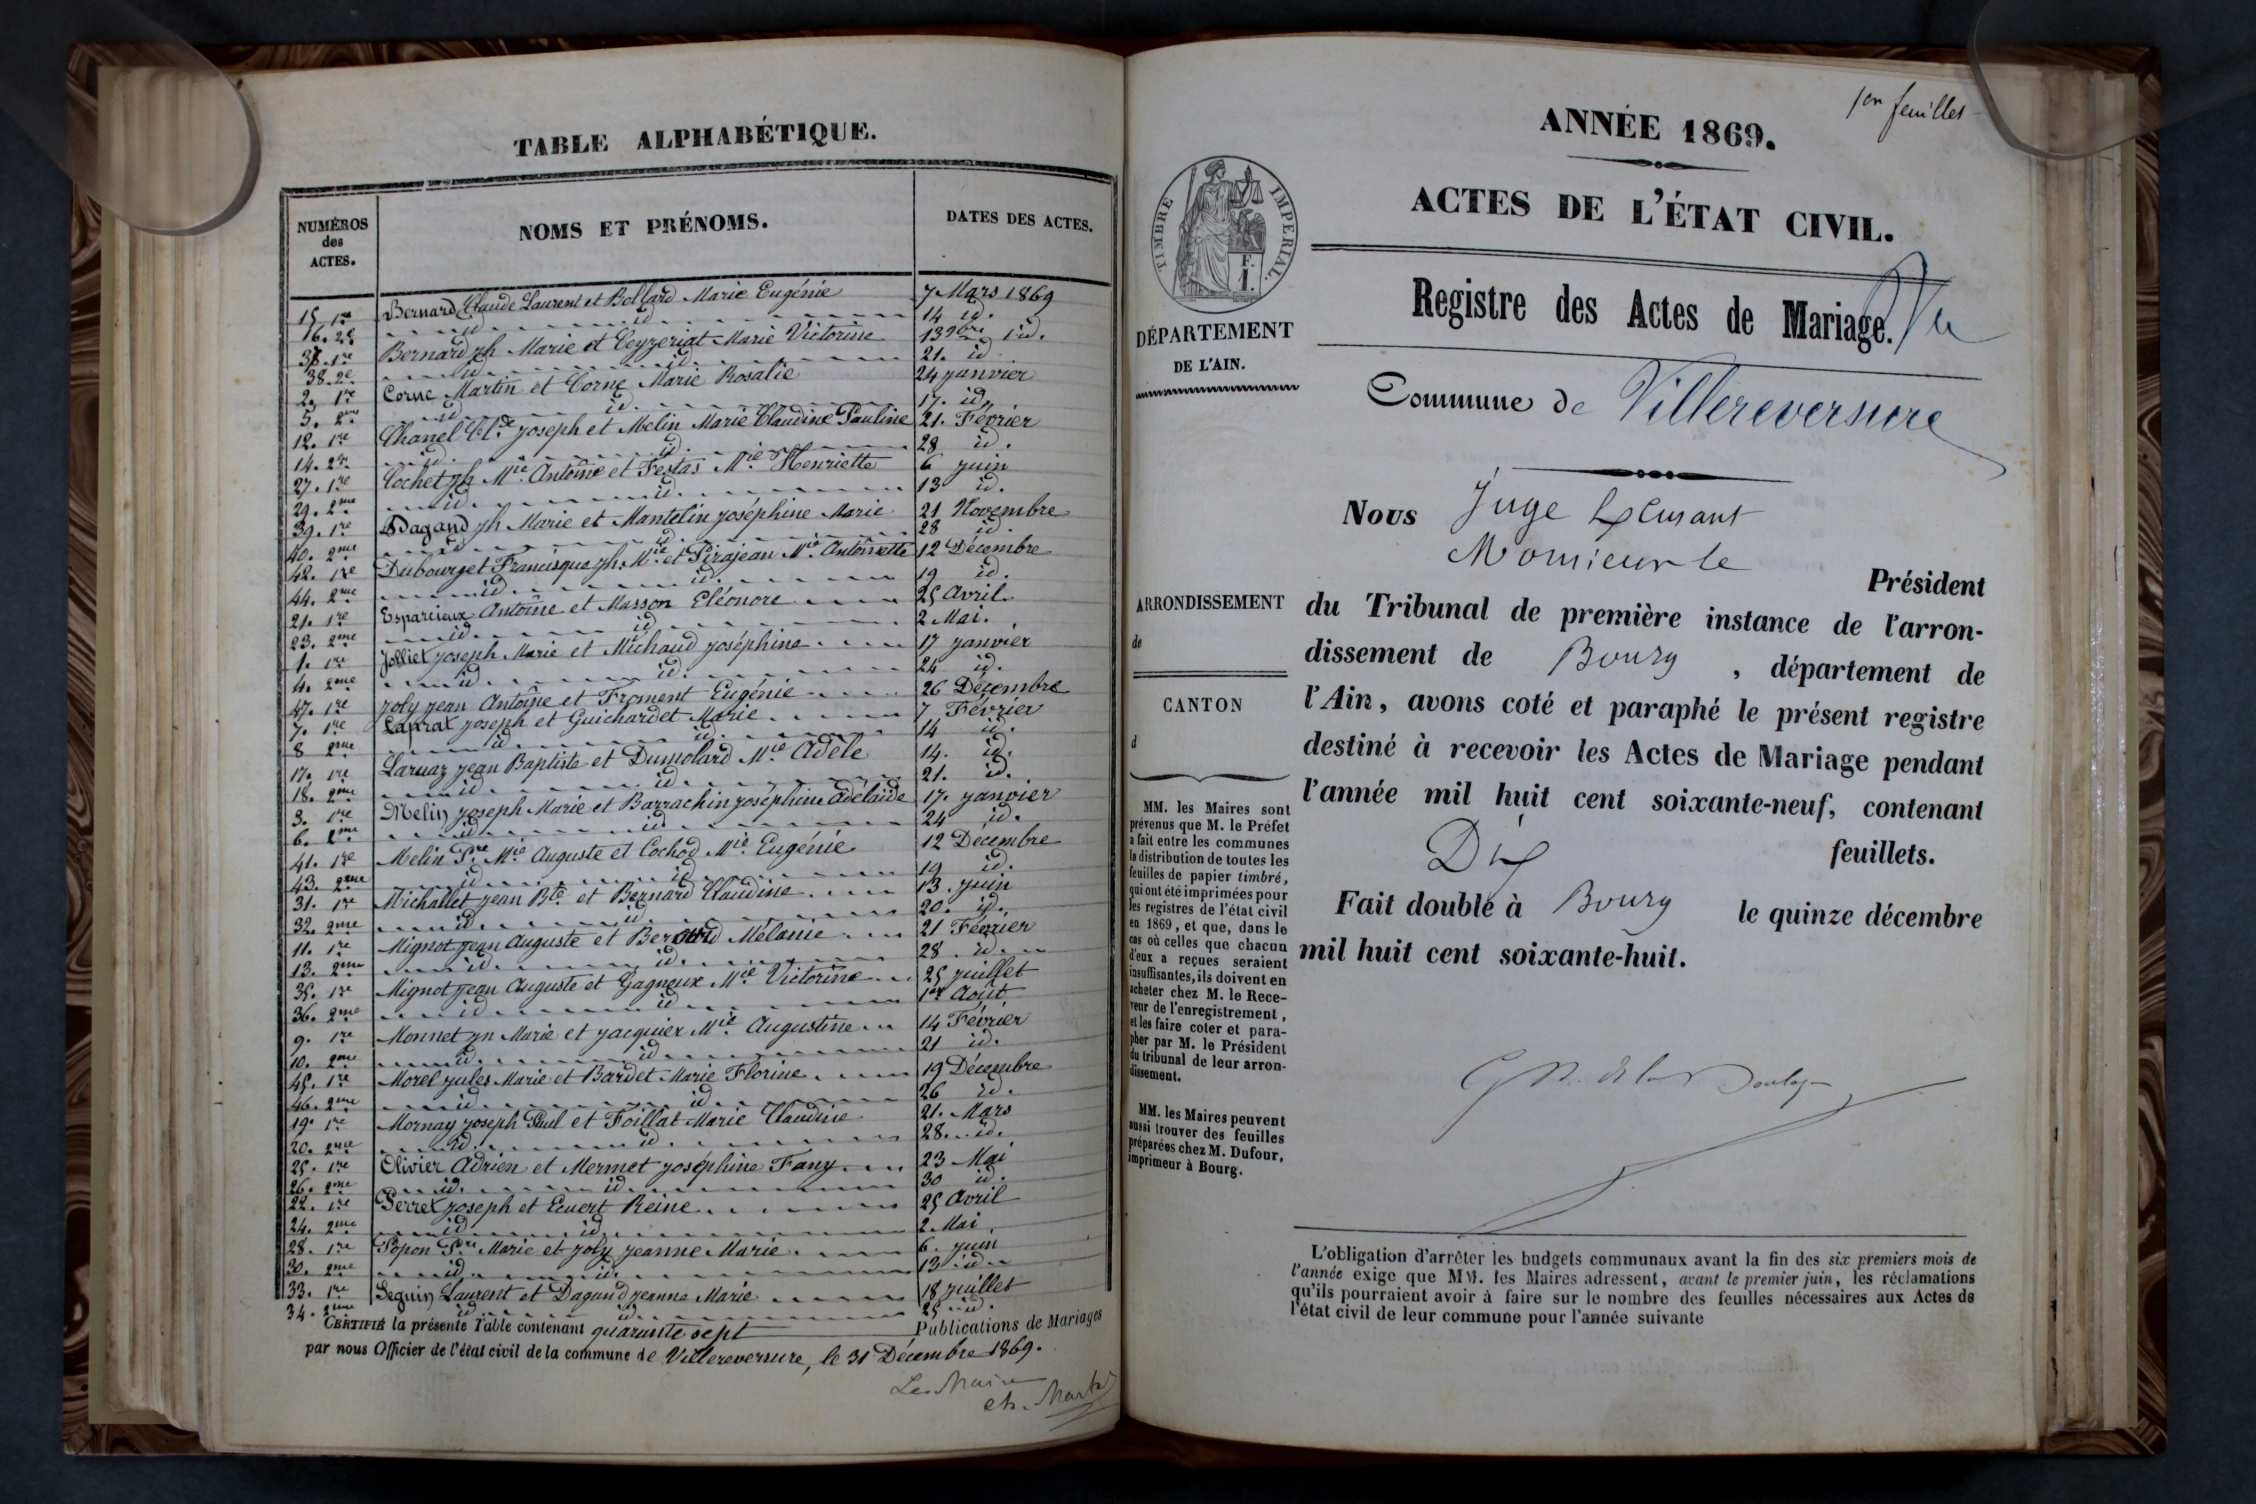 TABLE ALPHABÉTIQUE.
NUMÉROS des ACTES.
NOMS ET PRÉNOMS.
DATES DES ACTES.
15. 1re Bernard Claude Laurent et Bollard Marie Eugénie 7 Mars 1869
16. 2e id. id. 14 id.
37. 1re Bernard jh Marie et Ceyzeriat Marie Victorine 13 9bre id.
38. 2e id. id. 21. id
2. 1re Corne Martin et Corne Marie Rosalie 24 janvier
5. 2me id. id. 17. id.
12. 1re Chanel Cl.de joseph et Melin Marie Claudine Pauline 21. Février
14. 2me id. id. 28 id.
27. 1re Cochet jh Mie Antoine et Festas Mie Henriette 6 juin
29. 2me id. id. 13 id.
39. 1re Dagand jh Marie et Mantelin joséphine Marie 21 Novembre
40. 2me id. id. 28 id
42. 1re Dubourget Francisque jh. Mie et Pirajean Mie Antoinette 12 Décembre
44. 2me id. id. 19 id.
21. 1re Esparcieux Antoine et Masson Eléonore 25 Avril
23. 2me id. id 2 Mai.
1. 1re Jolliet joseph Marie et Michaud joséphine 17 janvier
4. 2me id. id. 24 id.
47. 1re joly jean Antoine et Froment Eugénie 26 Décembre
7. 1re Laprat joseph et Guichardet Marie 7 Février
8 2me id. id. 14 id.
17. 1re Laruaz jean Baptiste et Dumolard Mie Adèle 14. id.
18. 2me id. id. 21. id.
3. 1re Melin joseph Marie et Barrachin joséphine adélaïde 17. janvier
6. 2me id. id. 24 id.
41. 1re Melin Pre Mie Auguste et Cochod Mie Eugénie 12 Décembre
43. 2me id. id. 19 id.
31. 1re Michallet jean Bte et Bernard Claudine 13. juin
32. 2me id. id. 20. id.
11. 1re Mignot jean Auguste et Mélanie 21 Février
13. 2me id. id. 28. id.
35. 1re Mignot jean Auguste et Gagneux Mie Victorine 25 juillet
36. 2me id. id 1er Août
9. 1re Monnet jn Marie et jacquier Mie Augustine 14 Février
10. 2me id. id. 21 id.
45. 1re Morel jules Marie et Bardet Marie Florine 19 Décembre
46. 2me id. id. 26 id.
19. 1re Mornay joseph Paul et Foillat Marie Claudine 21. Mars
20. 2me id. id. 28. id.
25. 1re Olivier Adrien et Mermet joséphine Fany 23 Mai
26. 2me id. id. 30 id.
22. 1re Perret joseph et Ecuert Reine 25 Avril
24. 2me id id 2 Mai.
28. 1re Popon Pre Marie et joly jeanne Marie 6. juin
30. 2me id. id. 13 id.
33. 1re Seguin Laurent et Dagand jeanne Marie 18 juillet
34. 2me id. id. 25 id.
CERTIFIÉ la présente Table contenant quarante sept Publications de Mariages
par nous Officier de l'état civil de la commune de Villereversure, le 31 Décembre 1869.
Le Maire
1er feuillet
ANNÉE 1869.
TIMBRE IMPERIAL.
F.
1.
ACTES DE L'ÉTAT CIVIL.
Registre des Actes de Mariage.
Vu
DÉPARTEMENT
DE L'AIN.
Commune de Villereversure
ARRONDISSEMENT
de
CANTON
d
MM. les Maires sont
prévenus que M. le Préfet
a fait entre les communes
la distribution de toutes les
feuilles de papier timbré,
qui ont été imprimées pour
les registres de l'état civil
en 1869, et que, dans le
cas où celles que chacun
d'eux a reçues seraient
insuffisantes, ils doivent en
acheter chez M. le Rece-
veur de l'enregistrement,
et les faire coter et para-
pher par M. le Président
du tribunal de leur arron-
dissement.
MM. les Maires peuvent
aussi trouver des feuilles
préparées chez M. Dufour,
imprimeur à Bourg.
Nous Juge
Monsieur le
Président
du Tribunal de première instance de l'arron-
dissement de Bourg, département de
l'Ain, avons coté et paraphé le présent registre
destiné à recevoir les Actes de Mariage pendant
l'année mil huit cent soixante-neuf, contenant
Dix feuillets.
Fait double à Bourg le quinze décembre
mil huit cent soixante-huit.
L'obligation d'arrêter les budgets communaux avant la fin des six premiers mois de
l'année exige que MM. les Maires adressent, avant le premier juin, les réclamations
qu'ils pourraient avoir à faire sur le nombre des feuilles nécessaires aux Actes de
l'état civil de leur commune pour l'année suivante